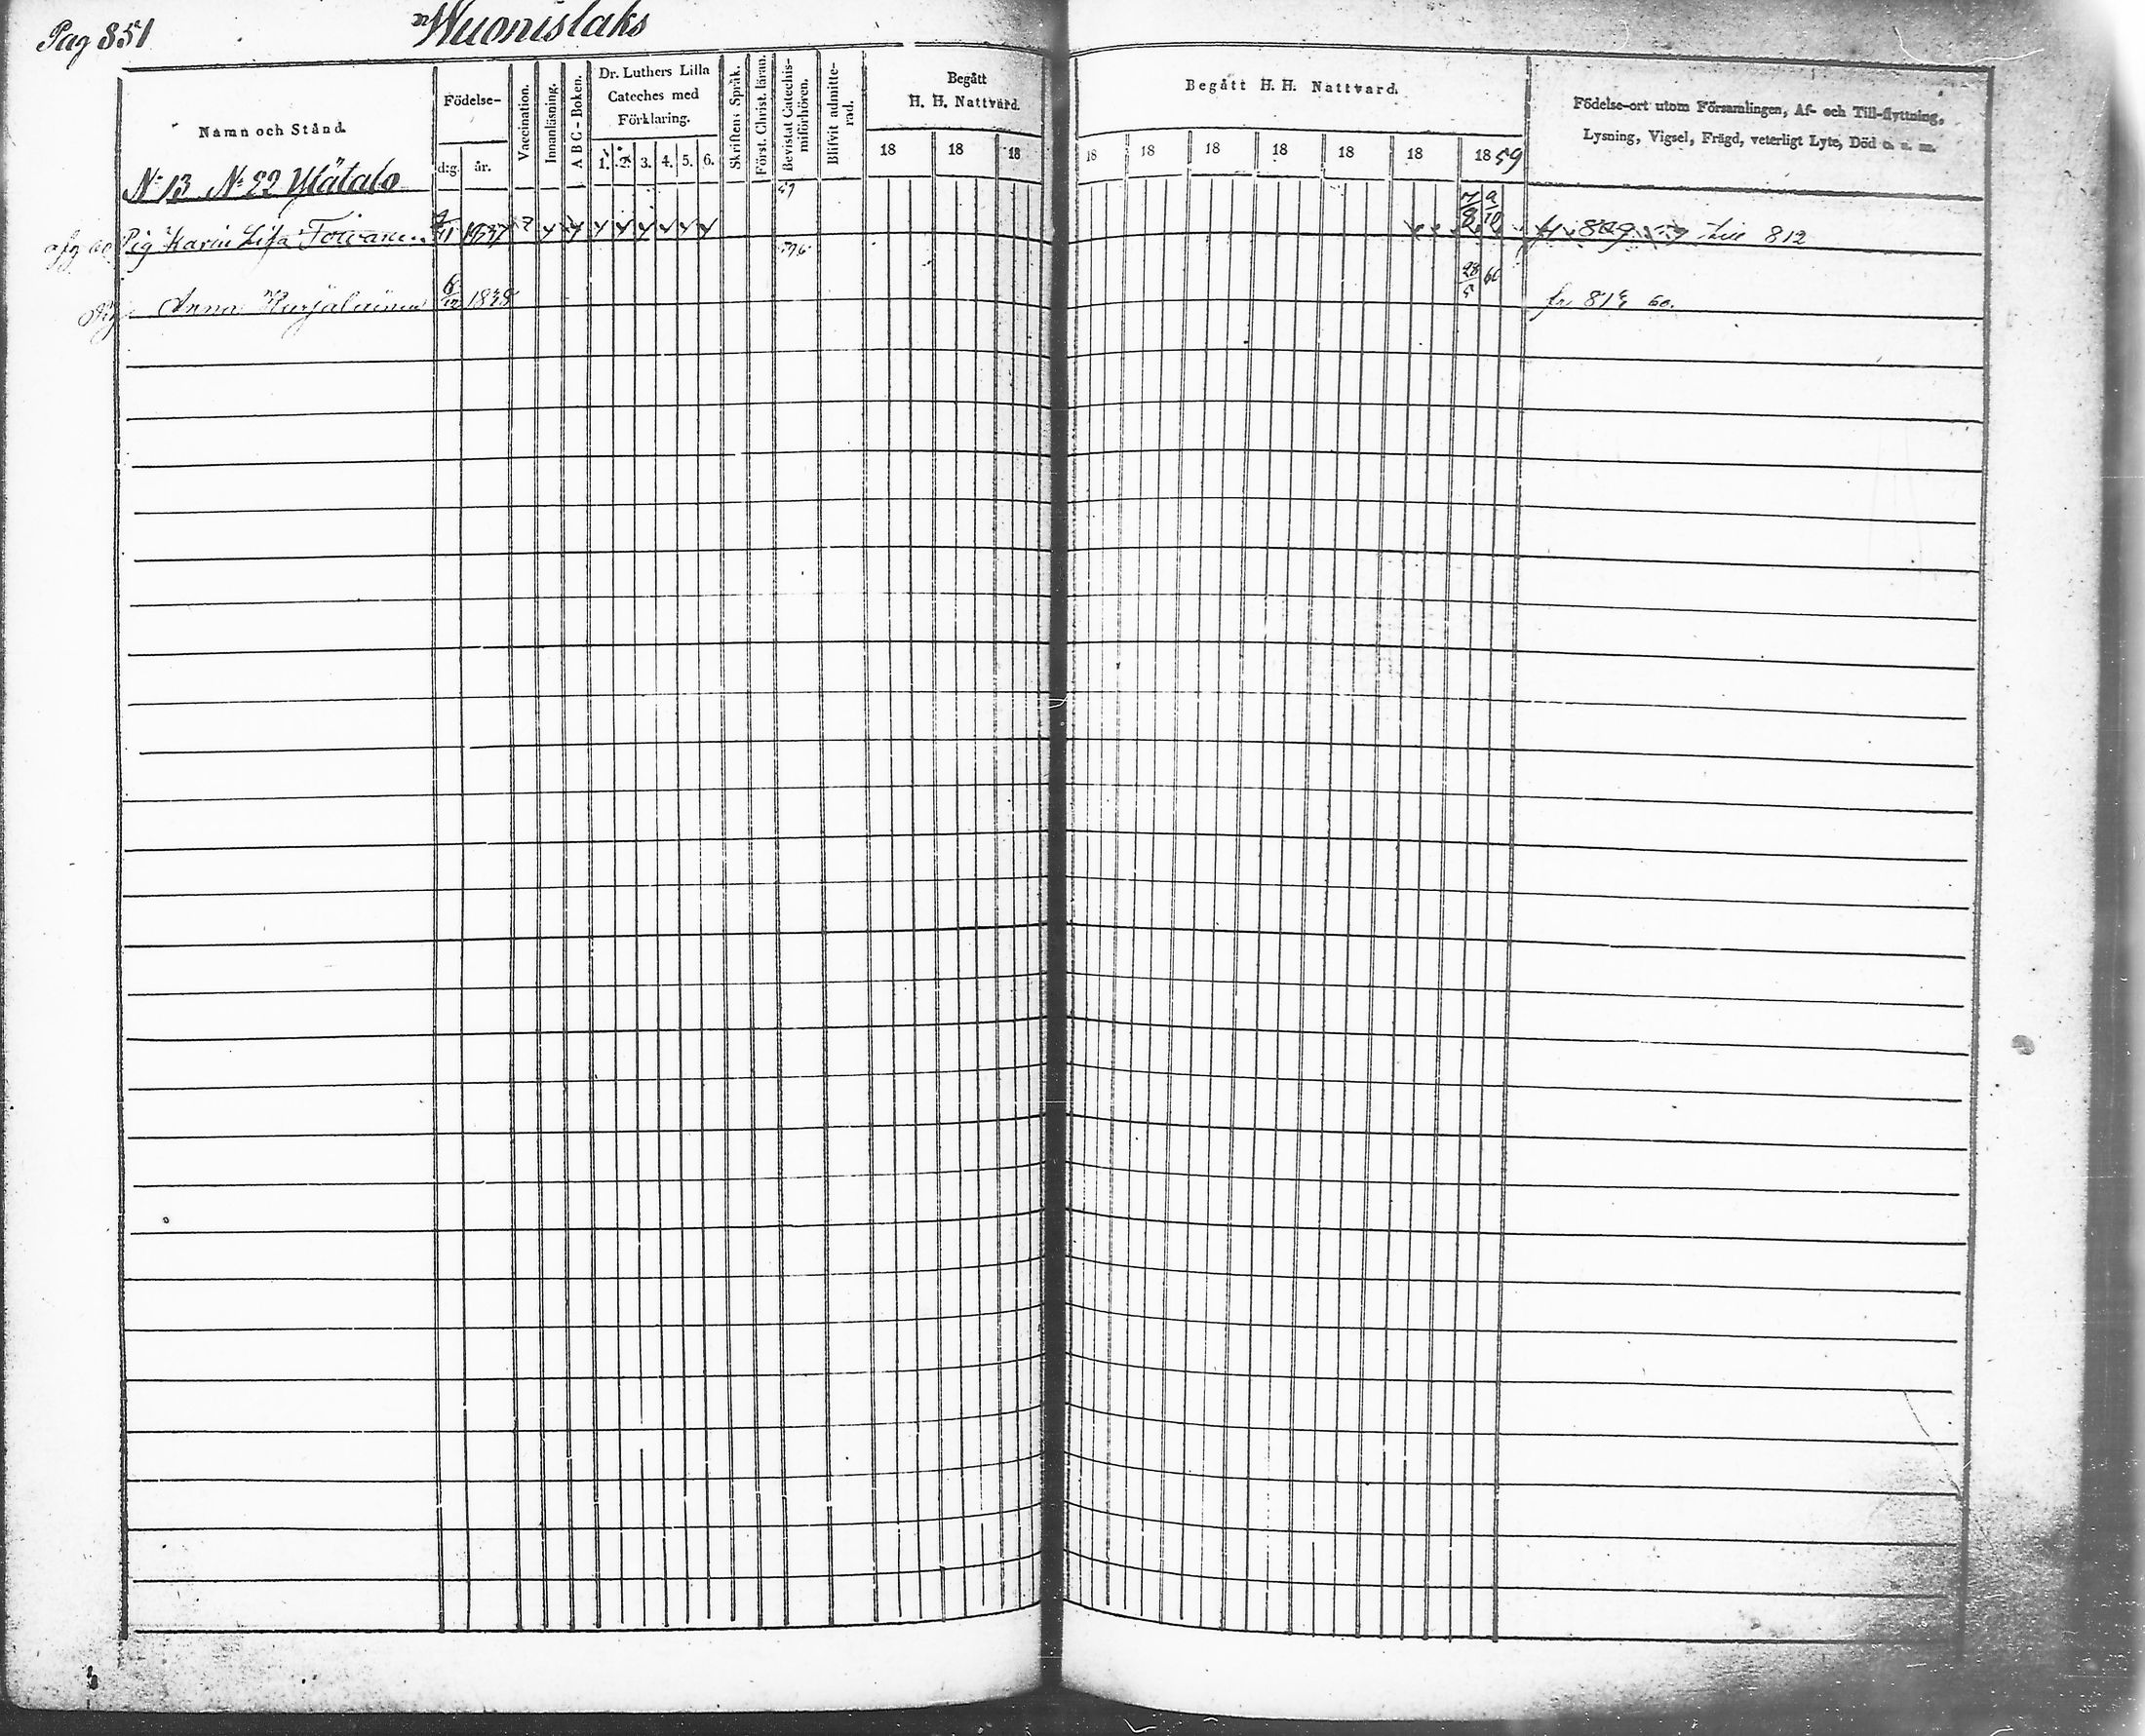 Pag 851 Wuonislaks
Namn och Stånd.
Födelse-
d:g. år.
Vaccination.
Innanläsning.
A B C - Boken.
Dr. Luthers Lilla
Cateches med
Förklaring.
1. 2. 3. 4. 5. 6.
Skriftens Språk.
Först. Christ. läran.
Bevistat Catechis-
miförhören.
Blifvit admitte-
rad.
Begått
H. H. Nattvard.
18 18 18
Begått H. H. Nattvard.
18 18 18 18 18 18 1859
Födelse-ort utom Församlingen, Af- och Till-flyttning,
Lysning, Vigsel, Frägd, veterligt Lyte, Död o. s. m.
No 13 No 22 Ylätalo
Pig Karin Lisa Toivanen 1837 7/8 9/10 till 812
Anna Karjalainen 6/12 1838 28/5 60 fr 60.